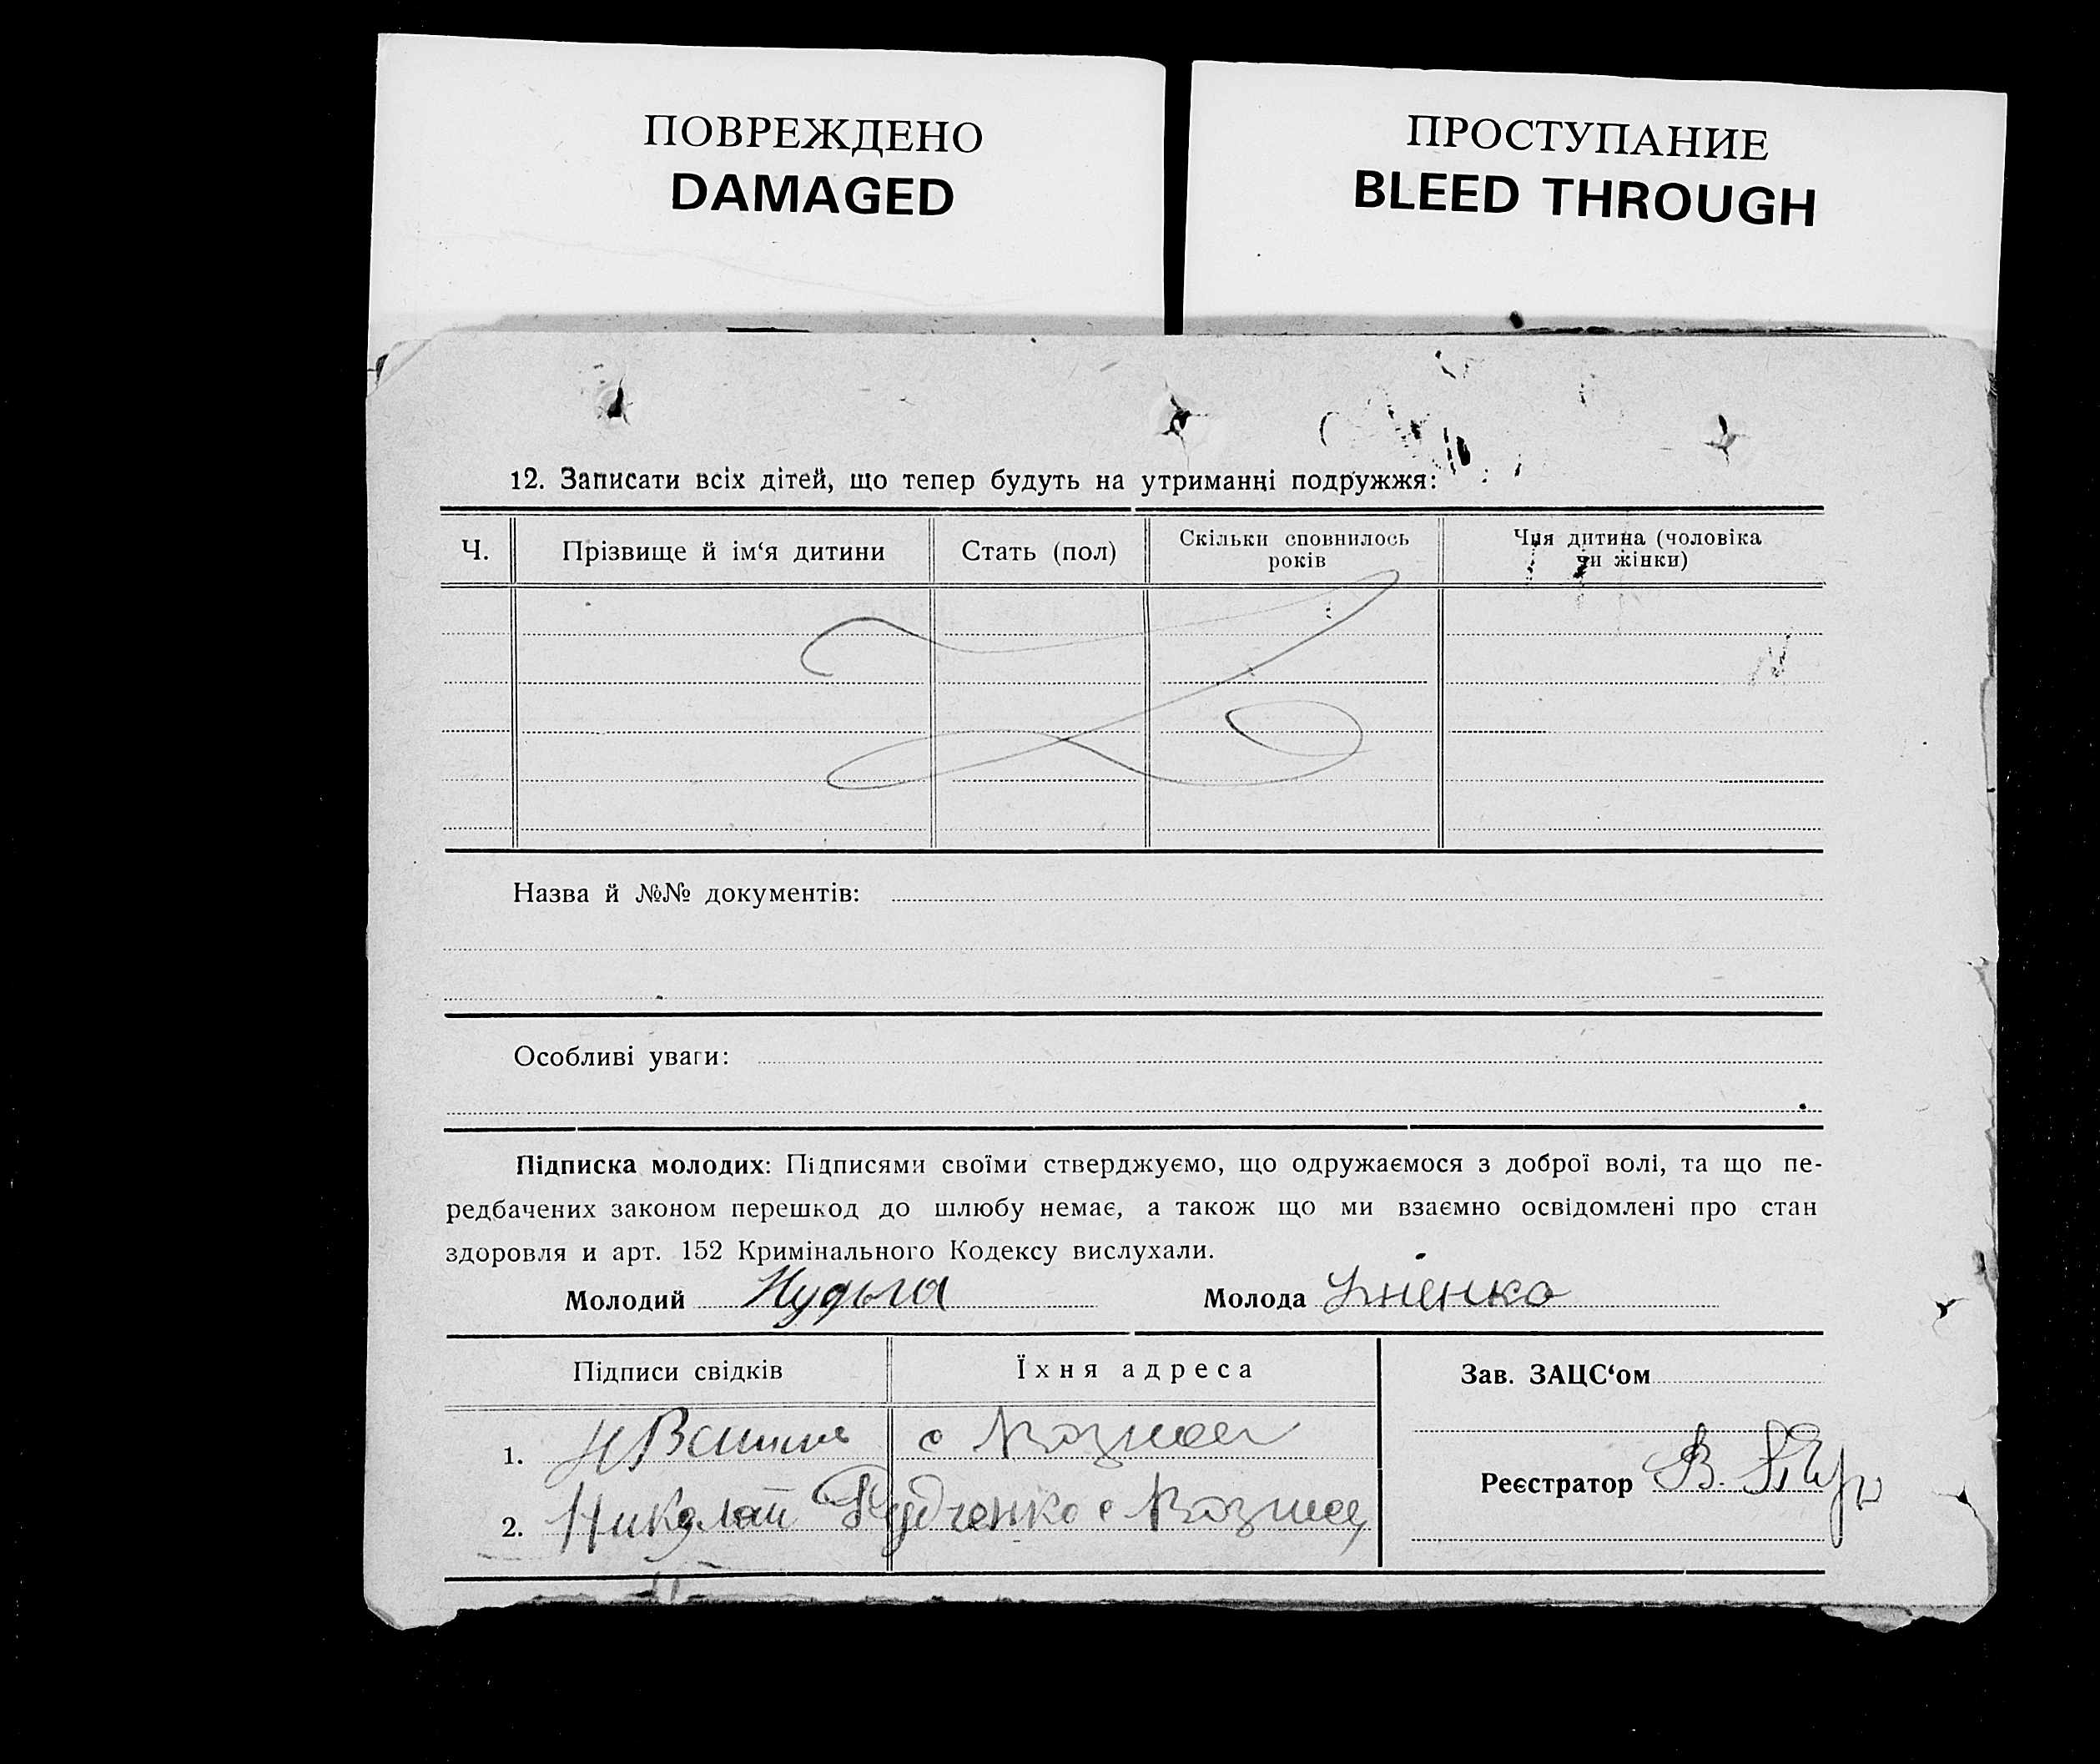 ПОВРЕЖДЕНО
DAMAGED
ПРОСТУПАНИЕ
BLEED THROUGH
12. Записати всіх дітей, що тепер будуть на утриманні подружжя:
Ч.
Прізвище й ім‘я дитини
Стать (пол)
Скільки сповнилось
років
Чия дитина (чоловіка
чи жінки)
Назва й №№ документів:
Особливі уваги:
Підписка молодих: Підписями своїми стверджуємо, що одружаємося з доброї волі, та що пе-
редбачених законом перешкод до шлюбу немає, а також що ми взаємно освідомлені про стан
здоровля и арт. 152 Кримінального Кодексу вислухали.
Молодий Нудьга
Молода
Підписи свідків
Їхня адреса
Зав. ЗАЦС‘ом
1. с
Реєстратор В.
2. Николай с